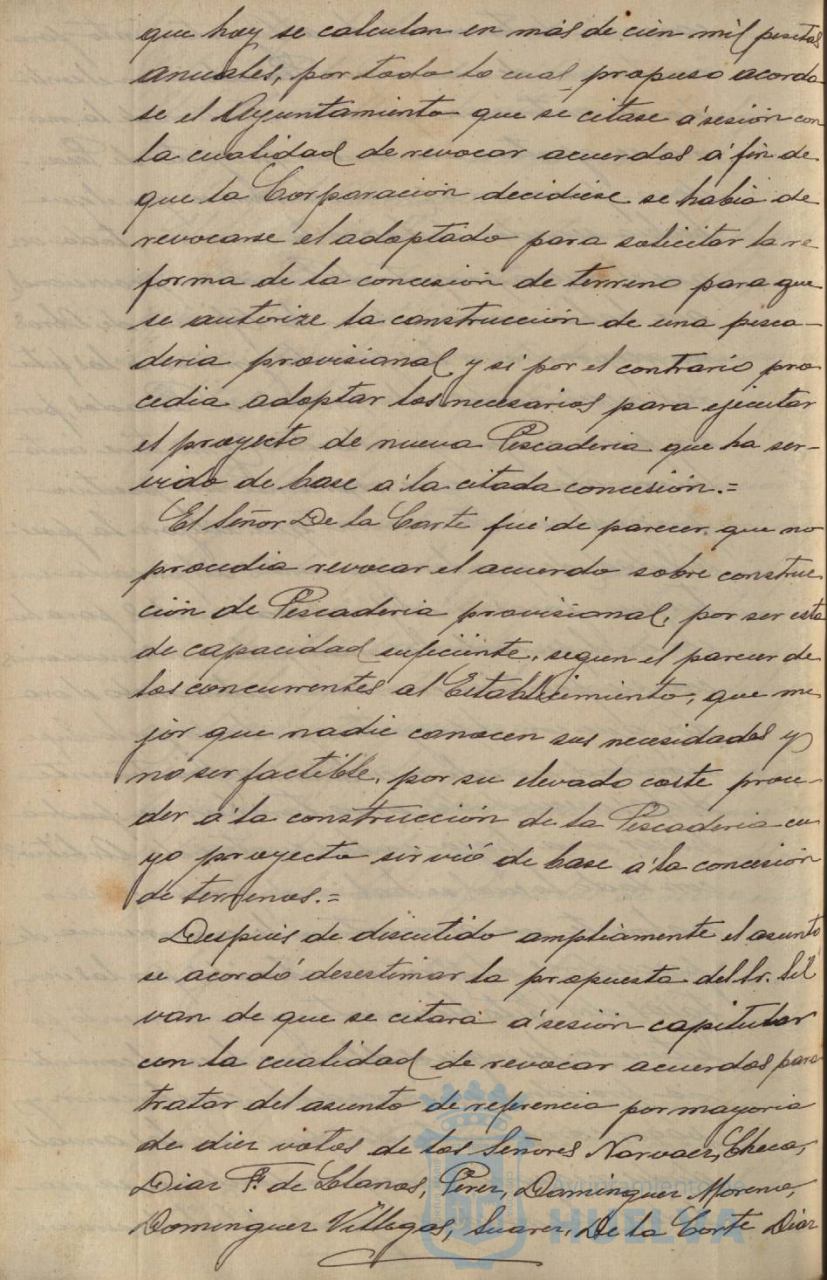 que hoy se calculan en más de cien mil pesetas
anuales, por todo lo cual propuso acorda
se el Ayuntamiento que se citase á sesión con
la cualidad de revocar acuerdos á fin de
que la Corporación decidiese se habia de
revocarse el adoptado para solicitar la re
forma de la concesión de terreno para que
se autorize la construcción de una pesca-
deria provisional, y si por el contrario pro
cedia adoptar los necesarios para ejecutar
el proyecto de nueva Pescaderia que ha ser-
vido de base á la citada concesión.=
El Señor De la Corte fué de parecer que no
procedia revocar el acuerdo sobre construc
ción de Pescaderia provisional, por ser esta
de capacidad suficiente, segun el parecer de
los concurrentes al Establecimiento, que me
jor que nadie conocen sus necesidades y
no ser factible, por su elevado coste proce-
der á la construcción de la Pescaderia cu
yo proyecto sirvió de base á la concesión
de terrenos.=
Después de discutido ampliamente el asunto
se acordó desestimar la propuesta del Sr. Sil
van de que se citara á sesión capitular
con la cualidad de revocar acuerdos para
tratar del asunto de referencia por mayoria
de diez votos de los Señores Narvaez, Checa,
Diaz F. de Llanos, Pérez, Dominguez Moreno,
Dominguez Villegas, Suarez, De la Corte Diaz
Ayuntamiento de
HUELVA